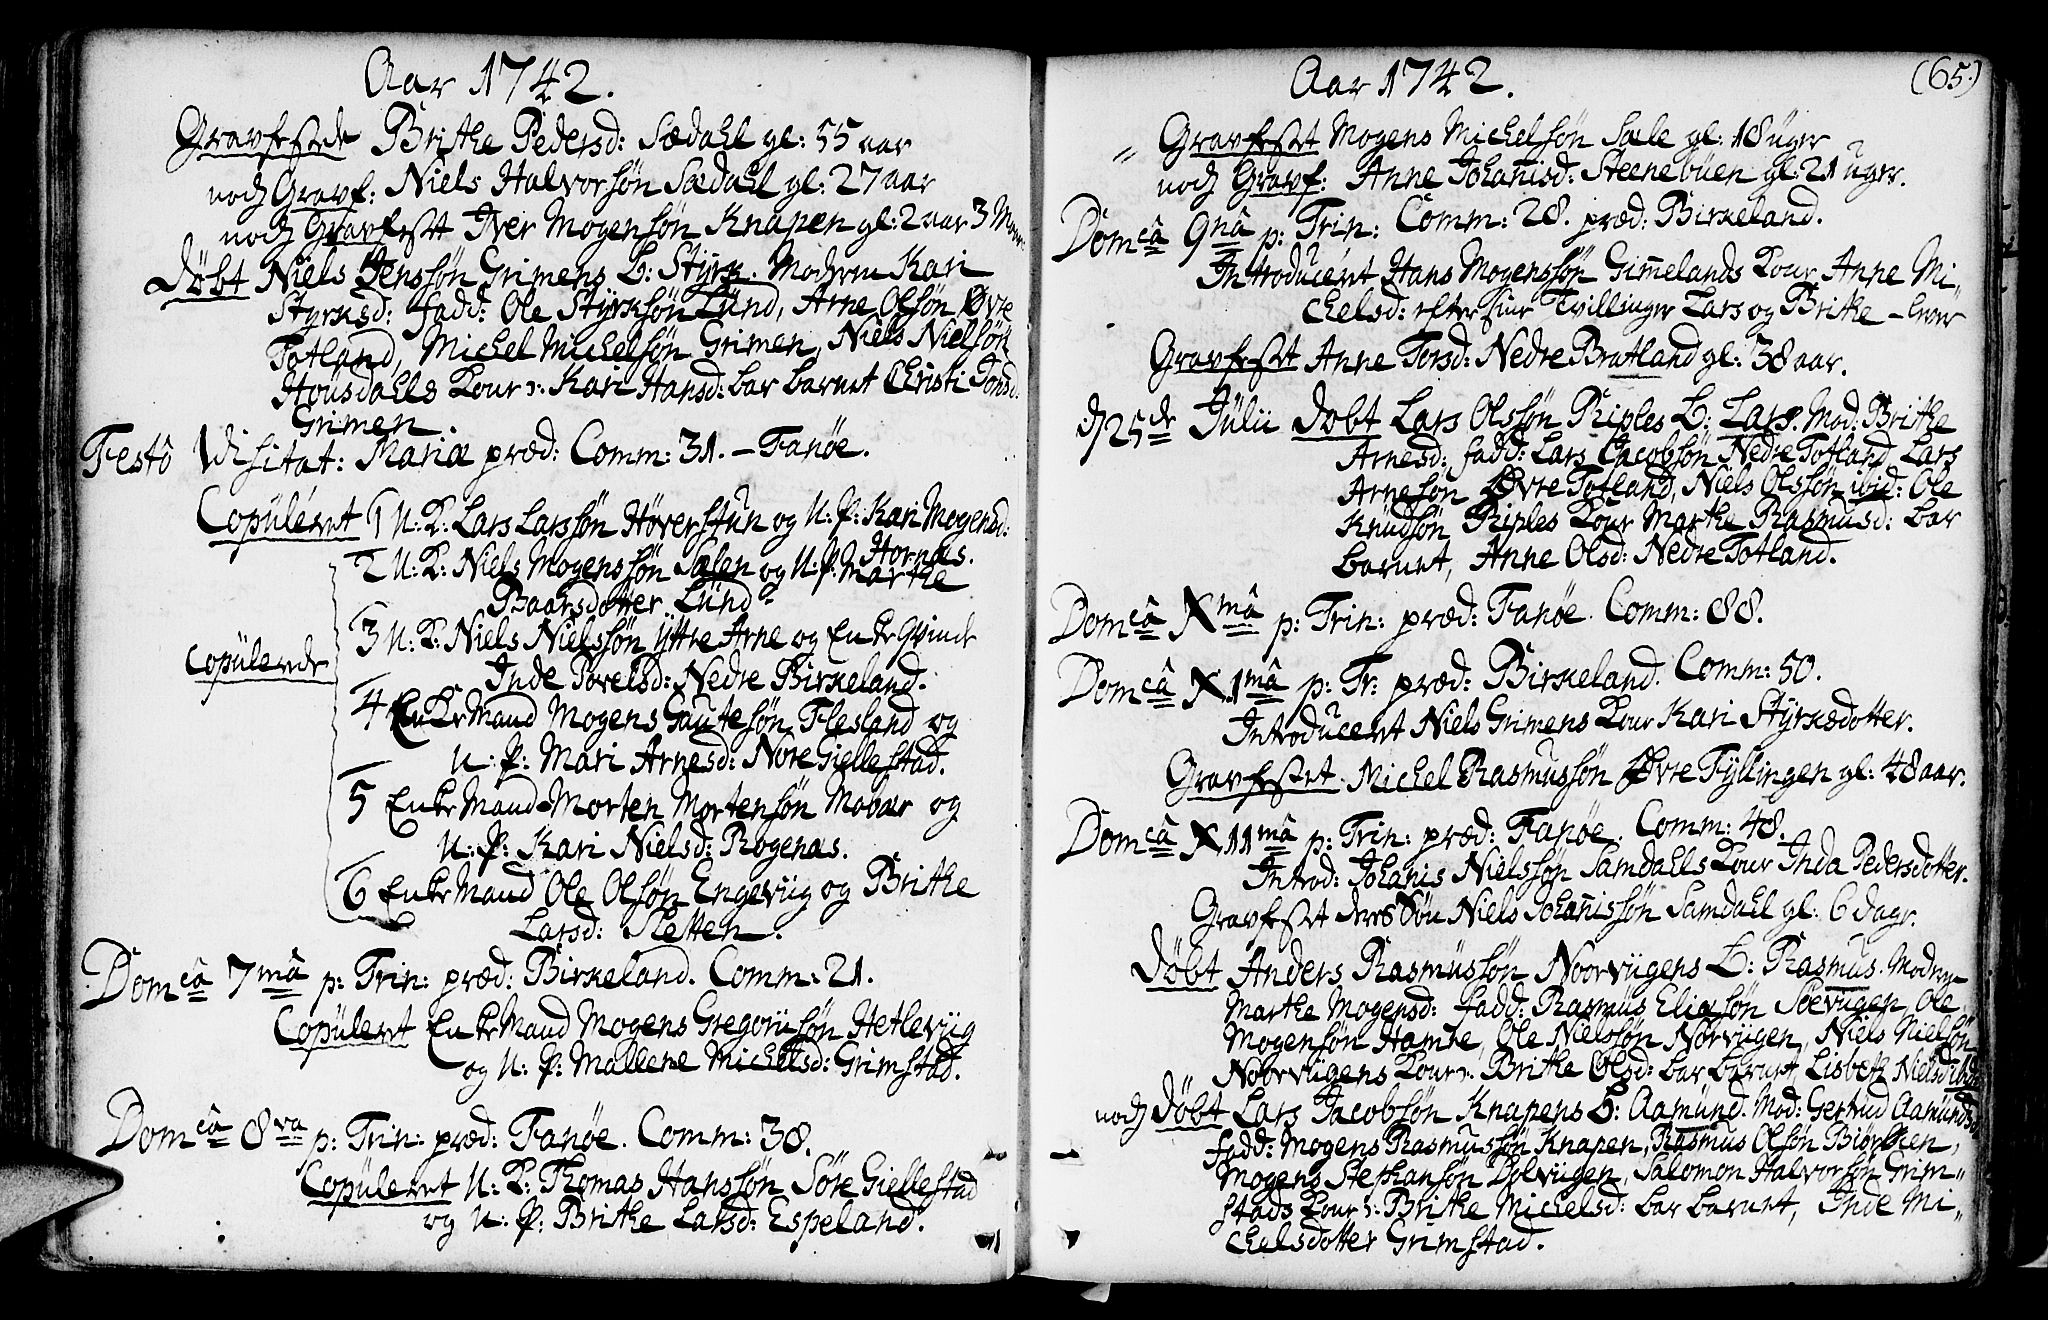 Aar 1742.
Gravfestede Brithe Pedersd: Sædahl gl: 55 aar
noch Gravf: Niels Halvorsøn Sædahl gl: 27 aar
noch Gravfestt Iver Mogensøn Knapen gl: 2 aar 3 Maan:
Døbt Niels Jenssøn Grimens B: Styrk. Moderen Kari
Styrksd: fadd: Ole Styrksøn Lund, Arne Olsøn Øvre
Totland, Michel Michelsøn Grimen, Niels Nielsøn
Housdahls Kone: Kari Hansd: bar barnet Christi Tonsd:
Grimen.
Festô Visitat: Mariæ præd: Comm: 31. - Fanøe.
Copüleret 1 U: K: Lars Larssøn Høverstun og U: P: Kari Mogensd:
Hornæs.
2 U: K: Niels Mogenssøn Sælen og U: P: Marthe
Baarsdotter Lund
3 U: K: Niels Nielssøn Yttre Arne og Enke Qvinde
Copülerede
Inde Povelsd: Nedre Birkeland.
4 Enke Mand Mogens Gautesøn Flesland og
U: P: Mari Arnesd: Nore Giellestad.
5 Enke Mand Morten Mortensøn Mobær og
U: P: Kari Nielsd: Rogenæs.
6 Enke Mand Ole Olsøn Engevüg og Brithe
Larsd: Sletten.
Domcâ 7mâ p: Trin: præd: Birkeland. Comm: 21.
Copüleret Enke Mand Mogens Gregoriisøn Hetlevüg
og U: P: Mallene Michelsd: Grimstad.
Domcâ 8va p: Trin: præd: Fanøe. Comm: 38.
Copüleret U: K: Thomas Hanssøn Søre Giellestad
og U: P: Brithe Larsd: Espeland.
Aar 1742. (65.)
Gravfestet Mogens Michelsøn Sæle gl: 18 uger
noch Gravf: Anne Johanisd: Steenebüen gl: 21 uger.
Domcâ 9nâ p: Trin: Comm: 28. præd: Birkeland.
Introduceret Hans Mogenssøn Gimelands Kone Anne Mi„
chelsd: efter sine Tvillinger Lars og Brithe
Gravfestet Anne Torsd: Nedre Bratland gl: 38 aar.
d 25de Julii Døbt Lars Olssøn Riples B: Lars. Mod: Brithe
Arnesd: fadd: Lars Jacobsøn Nedre Totland Lars
Arnesøn Øvre Totland, Niels Olssøn ibid: Ole
Knudsøn Riples Kone Marthe Rasmusd: bar
barnet, Anne Olsd: Nedre Totland.
Domcâ Xmâ p: Trin: præd: Fanøe. Comm: 88.
Domcâ X.1mâ p: Tr: præd: Birkeland. Comm: 50.
Introduceret Niels Grimens Kone Kari Styrksdotter.
Gravfestet. Michel Rasmussøn Øvre Fyllingen gl: 48 aar.
Domcâ X.11mâ p: Trin: præd: Fanøe. Comm: 48.
Introd: Johanis Nielssøn Samdals Kone Inda Pedersdotter.
Gravfestet deres Søn Niels Johanissøn Samdahl gl: 6 dage.
Døbt Anders Rasmussøn Noorvügens B: Rasmus. Moderen
Marthe Mogensd: Fadd: Rasmus Eliæsøn Søevügen, Ole
Mogensøn Hamre, Ole Nielssøn Norvügen, Niels Nielsøn
Noorvügens Kone: Brithe Olsd: bar barnet, Lisbeth Nielsd: ibid:
noch Døbt Lars Jacobsøn Knapens B: Aamund. Mod: Gertrud Aamundsd:
fadd: Mogens Rasmussøn Knapen, Rasmus Olsøn Biørken,
Mogens Stephansøn Dolvügen, Salomon Halvorsøn Grim„
stads Kone: Brithe Michelsd: bar barnet, Inde Mi„
chelsdotter Grimstad.